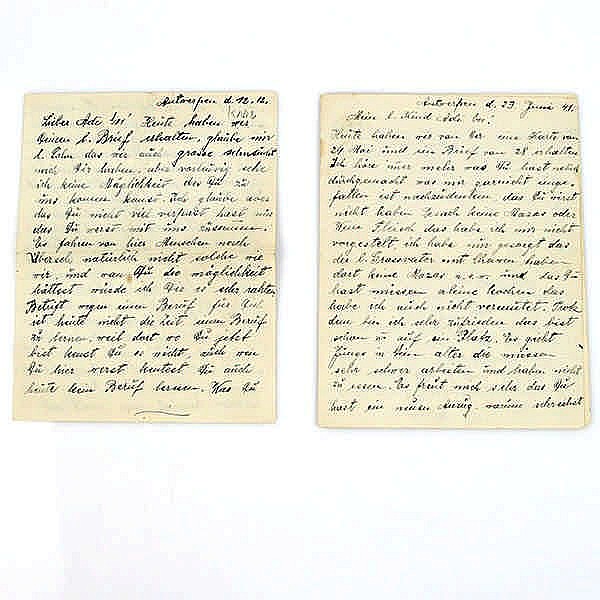 Antwerpen d. 12.12.
Lieber Adi Heute haben wir
Deinen l. Brief erhalten, glaube mir
l. Sohn das wir auch grosse sehnsucht
nach Dir haben, aber vorläufig sehe
ich keine Möglichkeit das Du zu
uns kommen kanst. Ich glaube aber
das Du nicht viel verpasst hast
das Du werst mit uns zusammen.
Es fahren von hier Menschen noch
natürlich nicht solche wie
wir, und wan Du die möglichkeit
hättest würde ich Dir es sehr rahten
Betrift wegen einen Beruf für Dich
ist heute nicht die Zeit, einen Beruf
zu lernen, weil dort wo Du jetzt
bist kanst Du es nicht, auch wen
Du hier werst kentest Du auch
heute kein Beruf lernen. Was Du
Antwerpen d. 23. Juni 41.
Mein l. Kind Adi!
Heute haben wir von Dir eine Karte von
29 Mai und ein Brief von 28 erhalten
Ich höre immer mehr was Du hast
durchgemacht was mir garnicht einge-
fallen ist nachzudenken das Du wirst
nicht haben keine Mazes oder
kein Fleisch das habe ich mir nicht
vorgestelt, ich habe mir gesorgt das
der l. Grossvater
dort keine Mazes u.s.w. und das Du
hast müssen alleine kochen das
habe ich auch nicht vermutet. Trotz
dem bin ich sehr zufrieden das bist
schon auf ein Platz. Es giebt
Jungs in Dein alter die müssen
sehr schwer arbeiten und haben nicht
zu essen. Es freut mich sehr das Du
hast ein neuen Anzug. warum schreibst